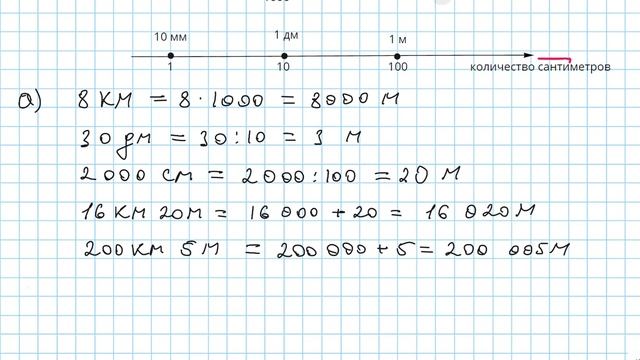 10 мм 1 дм 1 м
1 10 100 количество сантиметров
а) 8 км = 8 · 1000 = 8000 м
30 дм = 30 : 10 = 3 м
2000 см = 2000 : 100 = 20 м
16 км 20 м = 16 000 + 20 = 16 020 м
200 км 5 м = 200 000 + 5 = 200 005 м